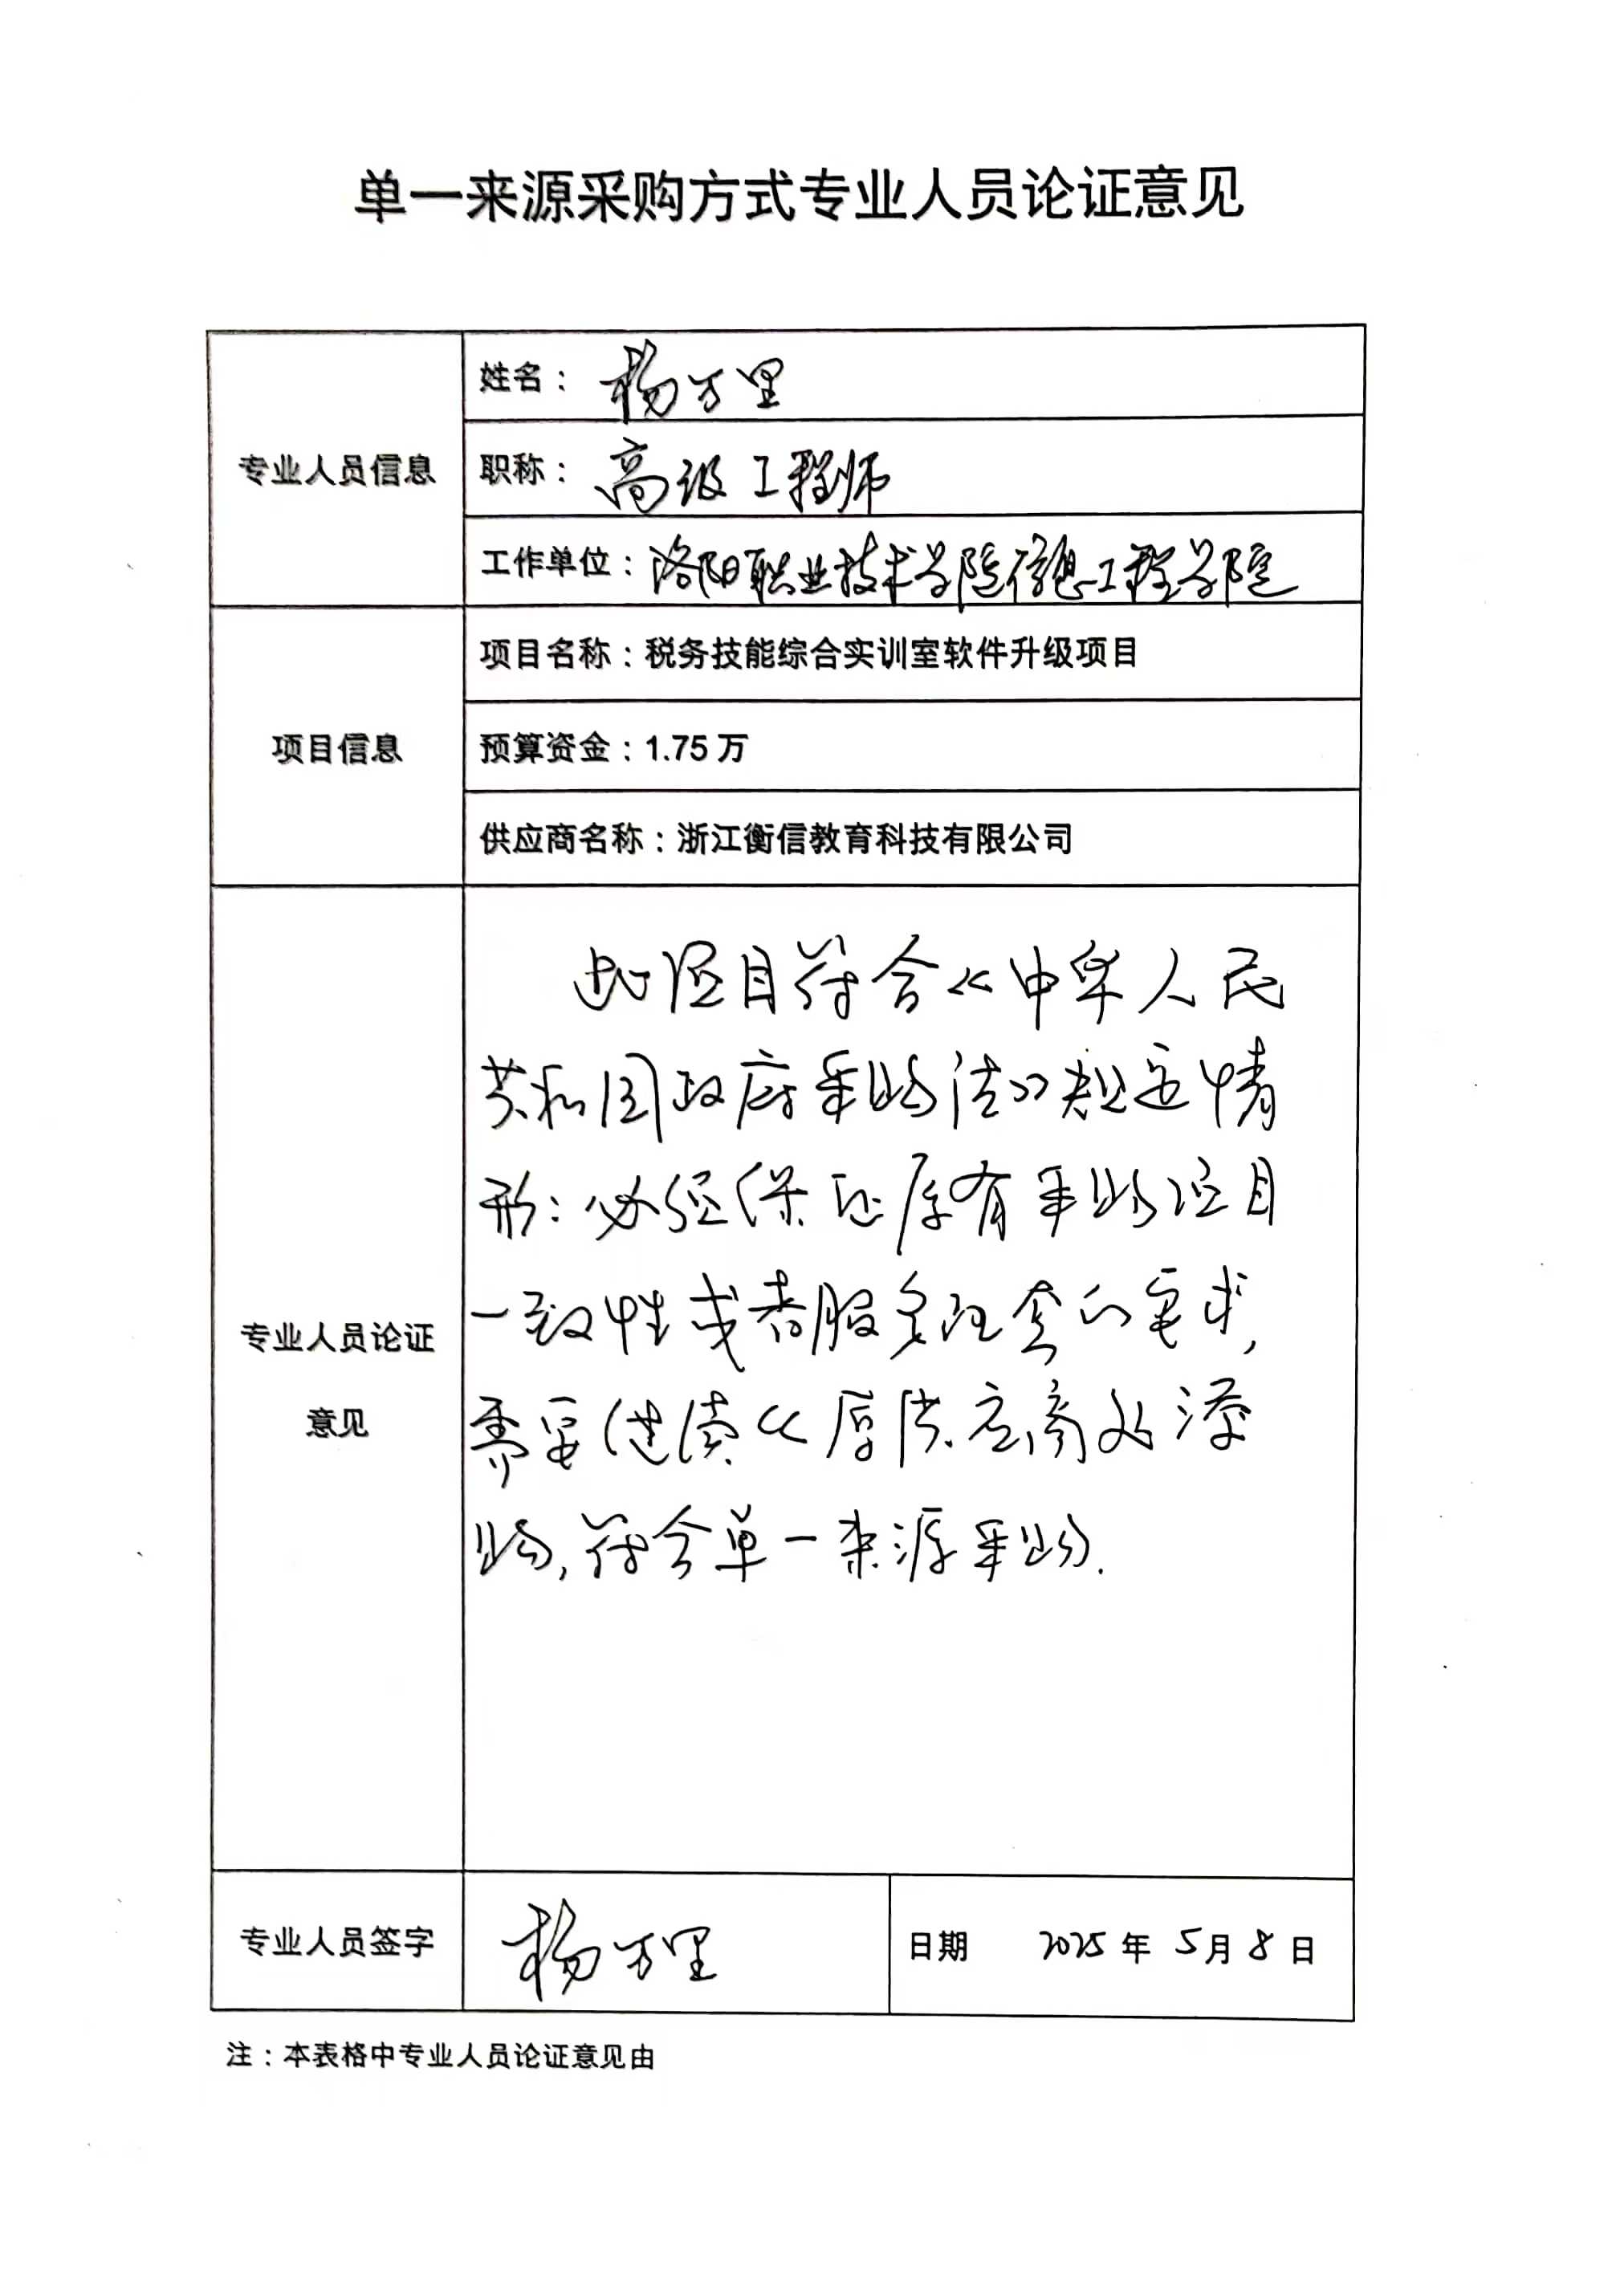 单一来源采购方式专业人员论证意见
专业人员信息
姓名：杨万里
职称：高级工程师
工作单位：洛阳职业技术学院信息工程学院
项目信息
项目名称：税务技能综合实训室软件升级项目
预算资金：1.75万
供应商名称：浙江衡信教育科技有限公司
专业人员论证
意见
此项目符合《中华人民
共和国政府采购法》规定情
形：必须保证原有采购项目
一致性或者服务配套的要求，
需要继续从原供应商处添
购，符合单一来源采购.
专业人员签字
杨万里
日期 2025年5月8日
注：本表格中专业人员论证意见由